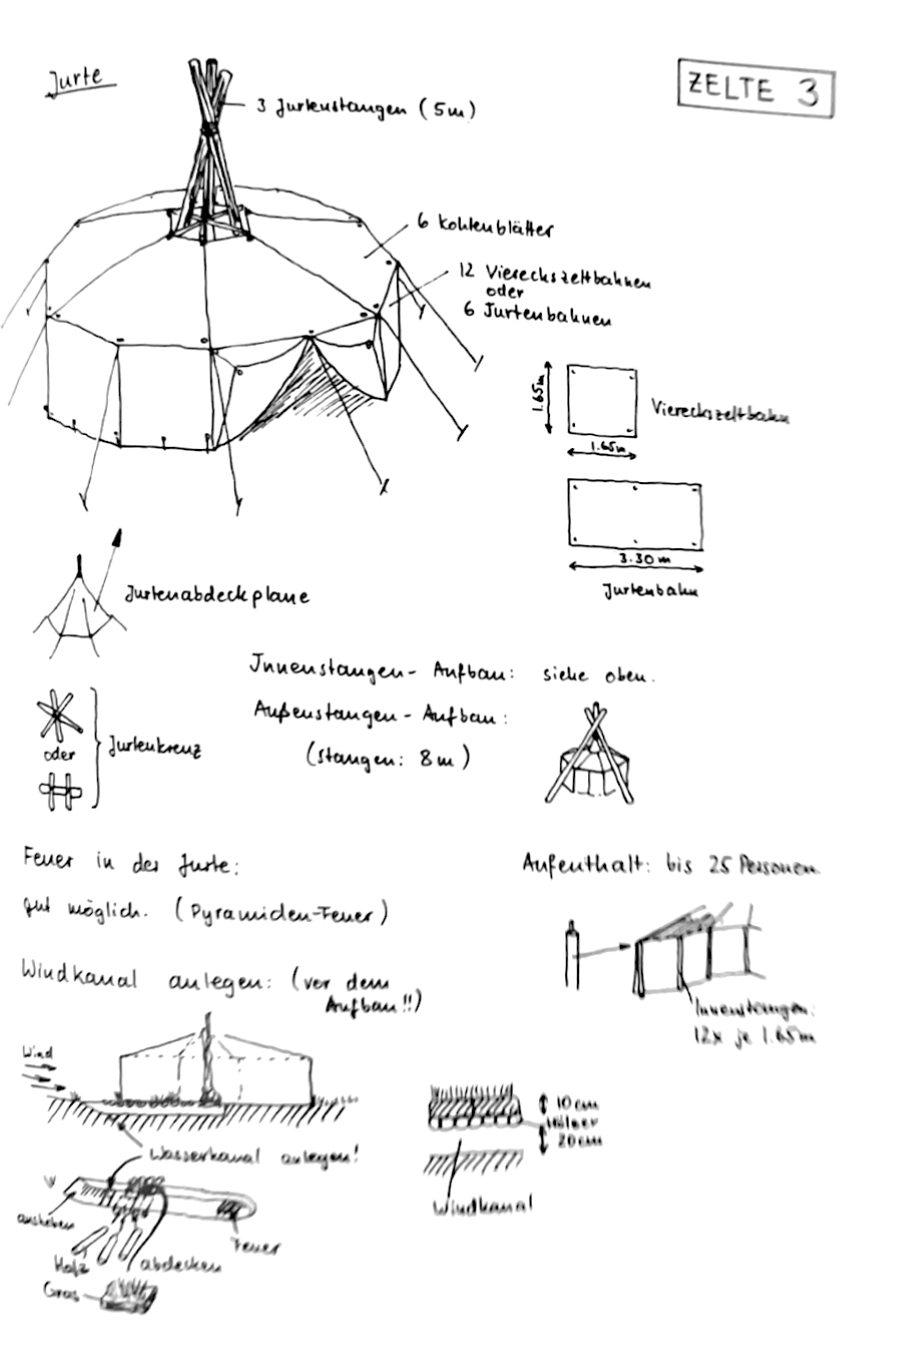 Jurte
ZELTE 3
3 Jurtenstangen (5m)
6 Kohtenblätter
12 Viereckszeltbahnen
oder
6 Jurtenbahnen
1.65m
1.65m
Viereckszeltbahn
3.30m
Jurtenbahn
Jurtenabdeckplane
Innenstangen- Aufbau: siehe oben.
Außenstangen- Aufbau:
(Stangen: 8m)
oder
Jurtenkreuz
Feuer in der Jurte:
gut möglich. (Pyramiden-Feuer)
Aufenthalt: bis 25 Personen
Innenstangen:
12x je 1.65m
Windkanal anlegen: (vor dem
Aufbau!!)
Wind
Wasserkanal anlegen!
ausheben
Holz
abdecken
Feuer
Gras
10cm
Hölzer
20cm
Windkanal